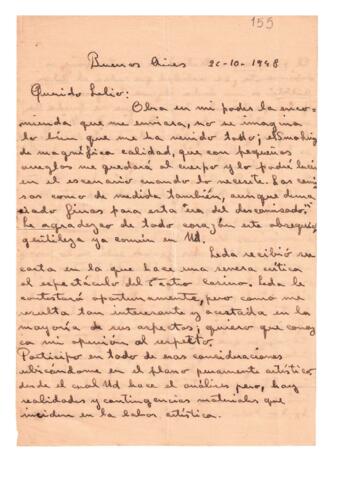 155
Buenos Aires 20-10-1948
Querido Lelio:
Obra en mi poder la enco-
mienda que me enviara, no se imagina
lo bien que me ha venido todo; el Smoking
de magnífica calidad, que con pequeños
arreglos me quedará al cuerpo y lo podré lucir
en el escenario cuando lo necesite. Las cami-
sas como de medida también, aunque dema-
siado finas para esta "era del descamisado,"
Le agradezco de todo corazón este obsequio,
gentileza ya común en Ud.
Leda recibió su
carta en la que hace una severa crítica
al espectáculo del Teatro Casino. Leda le
contestará oportunamente, pero como me
resulta tan interesante y acertada en la
mayoría de sus aspectos; quiero que conoz-
ca mi opinión al respecto.
Participo en todo de esas consideraciones
ubicándome en el plano puramente artístico
desde el cual Ud hace el análisis pero, hay
realidades y contingencias materiales que
inciden en la labor artística.